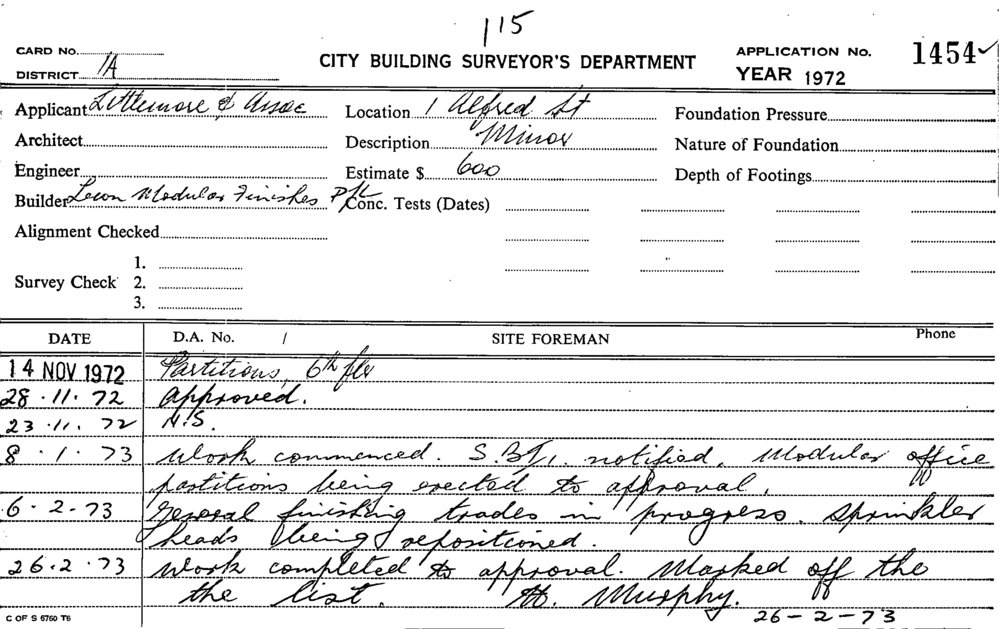 115
CARD No.
DISTRICT 1A
CITY BUILDING SURVEYOR'S DEPARTMENT
APPLICATION No. 1454
YEAR 1972
Applicant Littlemore & Assoc Location 1 Alfred St Foundation Pressure
Architect Description Minor Nature of Foundation
Engineer Estimate $ 600 Depth of Footings
Builder Modular Finishes P/L Conc. Tests (Dates)
Alignment Checked
1.
Survey Check 2.
3.
DATE D.A. No. / SITE FOREMAN Phone
14 NOV 1972 Partitions, 6th flr
28.11.72 Approved.
23.11.72 N.S.
8.1.73 Work commenced. S.B.I. notified. Modular office
partitions being erected to approval.
6.2.73 General finishing trades in progress. Sprinkler
heads being repositioned.
26.2.73 Work completed to approval. Marked off the
the list. Murphy.
26-2-73
C OF S 6760 T6